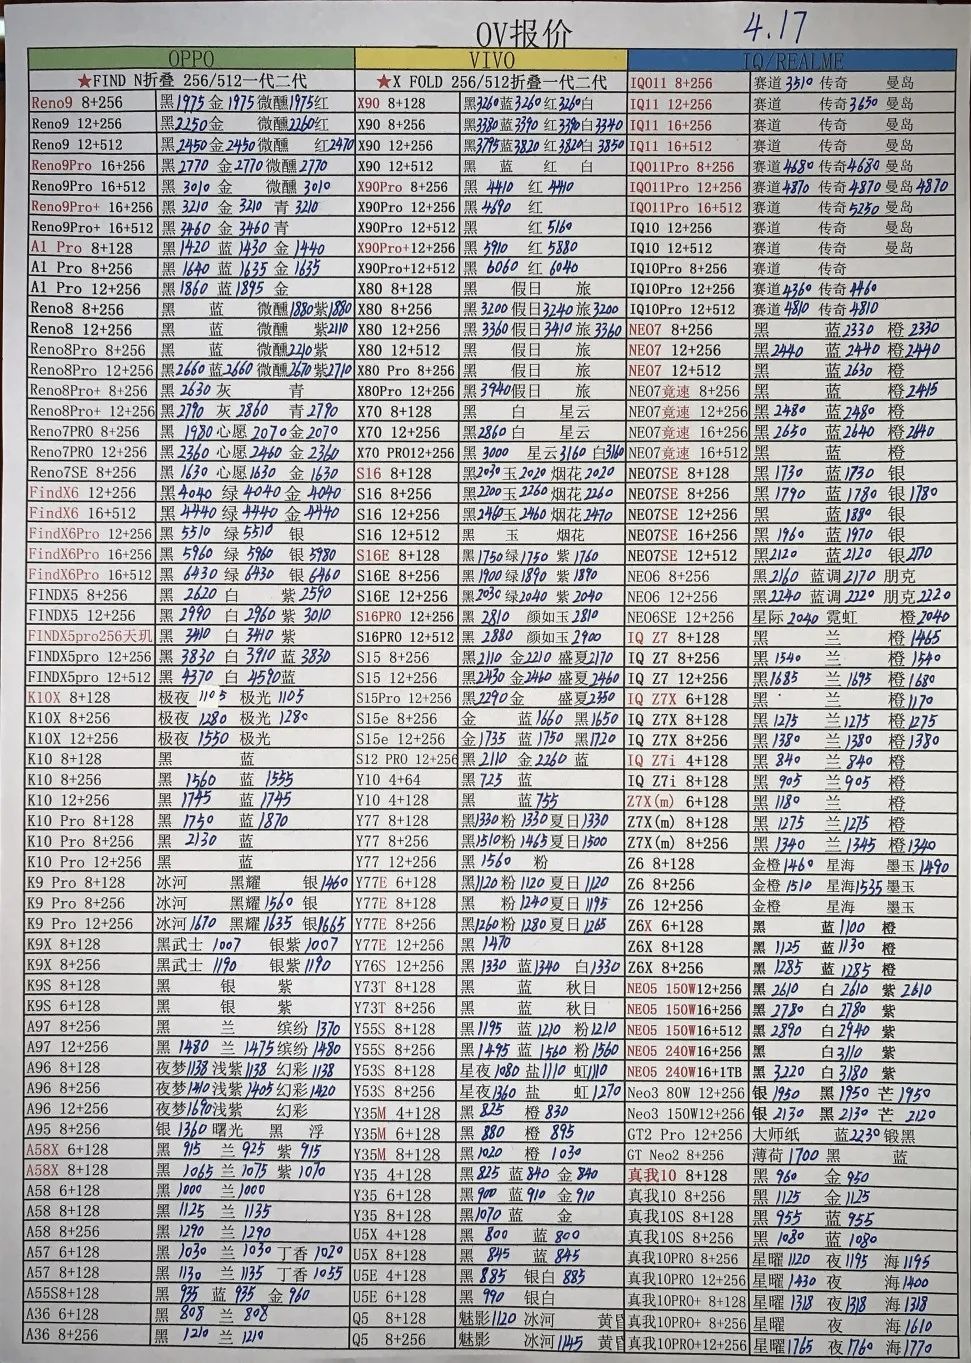 OV报价 4.17
OPPO
★FIND N折叠 256/512一代二代
Reno9 8+256 黑1975 金1975 微醺1975红
Reno9 12+256 黑2250金 微醺2260红
Reno9 12+512 黑2450金2450微醺 红2470
Reno9Pro 16+256 黑2770 金2770微醺2770
Reno9Pro 16+512 黑3010金 微醺3010
Reno9Pro+ 16+256 黑3210 金3210 青3210
Reno9Pro+ 16+512 黑3460金3460青
A1 Pro 8+128 黑1420 蓝1430 金1440
A1 Pro 8+256 黑1640 蓝1635金1635
A1 Pro 12+256 黑1860蓝1895 金
Reno8 8+256 黑 蓝 微醺1880紫1880
Reno8 12+256 黑 蓝 微醺 紫2110
Reno8Pro 8+256 黑 蓝 微醺2210紫
Reno8Pro 12+256 黑2660蓝2660微醺2670紫2710
Reno8Pro+ 8+256 黑2630灰 青
Reno8Pro+ 12+256 黑2790 灰2860 青2790
Reno7PRO 8+256 黑1980心愿2070金2070
Reno7PRO 12+256 黑2360心愿2460金2360
Reno7SE 8+256 黑1630心愿1630金1630
FindX6 12+256 黑4040 绿4040金4040
FindX6 16+512 黑4440 绿4440金4440
FindX6Pro 12+256 黑5510 绿5510 银
FindX6Pro 16+256 黑5960 绿5960 银5980
FindX6Pro 16+512 黑6430绿6430 银6460
FINDX5 8+256 黑2620白 紫2590
FINDX5 12+256 黑2990 白2960紫3010
FINDX5pro256天玑 黑3410 白3410紫
FINDX5pro 12+256 黑3830 白3910蓝3830
FINDX5pro 12+512 黑4370 白4590蓝
K10X 8+128 极夜1105 极光1105
K10X 8+256 极夜1280 极光1280
K10X 12+256 极夜1550 极光
K10 8+128 黑 蓝
K10 8+256 黑1560 蓝1555
K10 12+256 黑1745 蓝1745
K10 Pro 8+128 黑1750 蓝1870
K10 Pro 8+256 黑2130 蓝
K10 Pro 12+256 黑 蓝
K9 Pro 8+128 冰河 黑耀 银1460
K9 Pro 8+256 冰河 黑耀1560银
K9 Pro 12+256 冰河1670 黑耀1635 银1665
K9X 8+128 黑武士1007 银紫1007
K9X 8+256 黑武士1190 银紫1190
K9S 6+128 黑 银 紫
K9S 8+128 黑 银 紫
A97 8+128 黑 兰 缤纷1370
A97 12+256 黑1480 兰1475缤纷1480
A96 8+128 夜梦1138浅紫1138 幻彩1138
A96 8+256 夜梦1410浅紫1405幻彩1420
A96 12+256 夜梦1690浅紫 幻彩
A95 8+256 银1360曙光 黑 浮
A58X 6+128 黑915 兰925紫915
A58X 8+128 黑1065兰1075紫1070
A58 6+128 黑1000兰1000
A58 8+128 黑1125 兰1135
A58 8+256 黑1290 兰1290
A57 6+128 黑1030 兰1030丁香1020
A57 8+128 黑1130 兰1135 丁香1055
A55S8+128 黑935 蓝935 金960
A36 6+128 黑808 兰808
A36 8+256 黑1210兰1210
VIVO
★X FOLD 256/512折叠一代二代
X90 8+128 黑3260蓝3260红3260白
X90 8+256 黑3380蓝3390红3390白3340
X90 12+256 黑3795蓝3820红3820白3850
X90 12+512 黑 蓝 红 白
X90Pro 8+256 黑4410 红4410
X90Pro 12+256 黑4690 红
X90Pro 12+512 黑 红5160
X90Pro+12+256 黑5910 红5880
X90Pro+12+512 黑6060 红6040
X80 8+128 黑 假日 旅
X80 8+256 黑3200假日3240旅3200
X80 12+256 黑3360假日3410旅3360
X80 12+512 黑 假日 旅
X80 Pro 8+256 黑 假日 旅
X80Pro 12+256 黑3940假日 旅
X70 8+128 黑 白 星云
X70 12+256 黑2860白 星云
X70 PRO12+256 黑3000 星云3160白3160
S16 8+128 黑2030玉2020烟花2020
S16 8+256 黑2200玉2260烟花2260
S16 12+256 黑2460玉2460烟花2470
S16 12+512 黑 玉 烟花
S16E 8+128 黑1750绿1750紫1760
S16E 8+256 黑1900绿1890紫1890
S16E 12+256 黑2030绿2040紫2040
S16PRO 12+256 黑2810 颜如玉2810
S16PRO 12+512 黑2880 颜如玉2900
S15 8+256 黑2110金2210盛夏2170
S15 12+256 黑2430金2460盛夏2460
S15Pro 12+256 黑2290金 盛夏2350
S15e 8+256 金 蓝1660 黑1650
S15e 12+256 金1735 蓝1750 黑1720
S12 PRO 12+256 黑2110金2260蓝
Y10 4+64 黑725蓝
Y10 4+128 黑 蓝755
Y77 8+128 黑1330粉1330夏日1330
Y77 8+256 黑1510粉1465夏日1500
Y77 12+256 黑1560 粉
Y77E 6+128 黑1120粉1120夏日1120
Y77E 8+128 黑 粉1240夏日1195
Y77E 8+256 黑1260粉1280夏日1265
Y77E 12+256 黑1470
Y76S 12+256 黑1330 蓝1340 白1330
Y73T 8+128 黑 蓝 秋日
Y73T 8+256 黑 蓝 秋日
Y55S 8+128 黑1195 蓝1210 粉1210
Y55S 8+256 黑1495 蓝1560 粉1560
Y53S 8+128 星夜1080盐1110虹1110
Y53S 8+256 星夜1360盐 虹1270
Y35M 4+128 黑825 橙830
Y35M 6+128 黑880 橙895
Y35M 8+128 黑1020 橙1030
Y35 4+128 黑825 蓝840 金840
Y35 6+128 黑900 蓝910 金910
Y35 8+128 黑1070蓝 金
U5X 4+128 黑800 蓝800
U5X 8+128 黑845 蓝845
U5E 4+128 黑885 银白885
U5E 6+128 黑990 银白
Q5 8+128 魅影1120冰河 黄昏
Q5 8+256 魅影 冰河1145黄昏
IQ/REALME
IQO11 8+256 赛道3510传奇 曼岛
IQ11 12+256 赛道 传奇3650曼岛
IQ11 16+256 赛道 传奇 曼岛
IQ11 16+512 赛道 传奇 曼岛
IQO11Pro 8+256 赛道4680传奇4680曼岛
IQO11Pro 12+256 赛道4870传奇4870曼岛4870
IQO11Pro 16+512 赛道 传奇5250曼岛
IQ10 12+256 赛道 传奇 曼岛
IQ10 12+512 赛道 传奇 曼岛
IQ10Pro 8+256 赛道 传奇
IQ10Pro 12+256 赛道4360传奇4460
IQ10Pro 12+512 赛道4810传奇4810
NEO7 8+256 黑 蓝2330 橙2330
NEO7 12+256 黑2440 蓝2440橙2440
NEO7 12+512 黑 蓝2630橙
NEO7竞速 8+256 黑 蓝 橙2415
NEO7竞速 12+256 黑2480 蓝2480橙
NEO7竞速 16+256 黑2650 蓝2640橙2640
NEO7竞速 16+512 黑 蓝 橙
NEO7SE 8+128 黑1730 蓝1730银
NEO7SE 8+256 黑1790 蓝1780银1780
NEO7SE 12+256 黑 蓝1880银
NEO7SE 16+256 黑1960 蓝1970银
NEO7SE 12+512 黑2120 蓝2120银2170
NEO6 8+256 黑2160 蓝调2170朋克
NEO6 12+256 黑2240 蓝调2220朋克2220
NEO6SE 12+256 星际2040霓虹 橙2040
IQ Z7 8+128 黑 兰 橙1465
IQ Z7 8+256 黑1540 兰 橙1540
IQ Z7 12+256 黑1685 兰1695 橙1680
IQ Z7X 6+128 黑 兰 橙1170
IQ Z7X 8+128 黑1275 兰1275 橙1275
IQ Z7X 8+256 黑1380 兰1380 橙1380
IQ Z7i 4+128 黑840 兰840 橙
IQ Z7i 8+128 黑905 兰905 橙
Z7X(m) 6+128 黑1180 兰 橙
Z7X(m) 8+128 黑1275 兰1275 橙
Z7X(m) 8+256 黑1340 兰1345 橙1340
Z6 8+128 金橙1460 星海 墨玉1490
Z6 8+256 金橙1510 星海1535墨玉
Z6 12+256 金橙 星海 墨玉
Z6X 6+128 黑 蓝1100 橙
Z6X 8+128 黑1125 蓝1130 橙
Z6X 8+256 黑1285 蓝1285 橙
NEO5 150W12+256 黑2610 白2610 紫2610
NEO5 150W16+256 黑2780 白2780 紫
NEO5 150W16+512 黑2890 白2940 紫
NEO5 240W16+256 黑 白3110 紫
NEO5 240W16+1TB 黑3220 白3180 紫
Neo3 80W 12+256 银1950 黑1950芒1950
Neo3 150W12+256 银2130 黑2130芒2120
GT2 Pro 12+256 大师纸 蓝2230锻黑
GT Neo2 8+256 薄荷1700黑 蓝
真我10 8+128 黑960 金950
真我10 8+256 黑1125 金1125
真我10S 8+128 黑955 蓝955
真我10S 8+256 黑1080 蓝1080
真我10PRO 8+256 星曜1120 夜1195 海1195
真我10PRO 12+256 星曜1430 夜 海1400
真我10PRO+ 8+128 星曜1318 夜1318 海1318
真我10PRO+ 8+256 星曜 夜 海1610
真我10PRO+12+256 星曜1765 夜1760 海1770